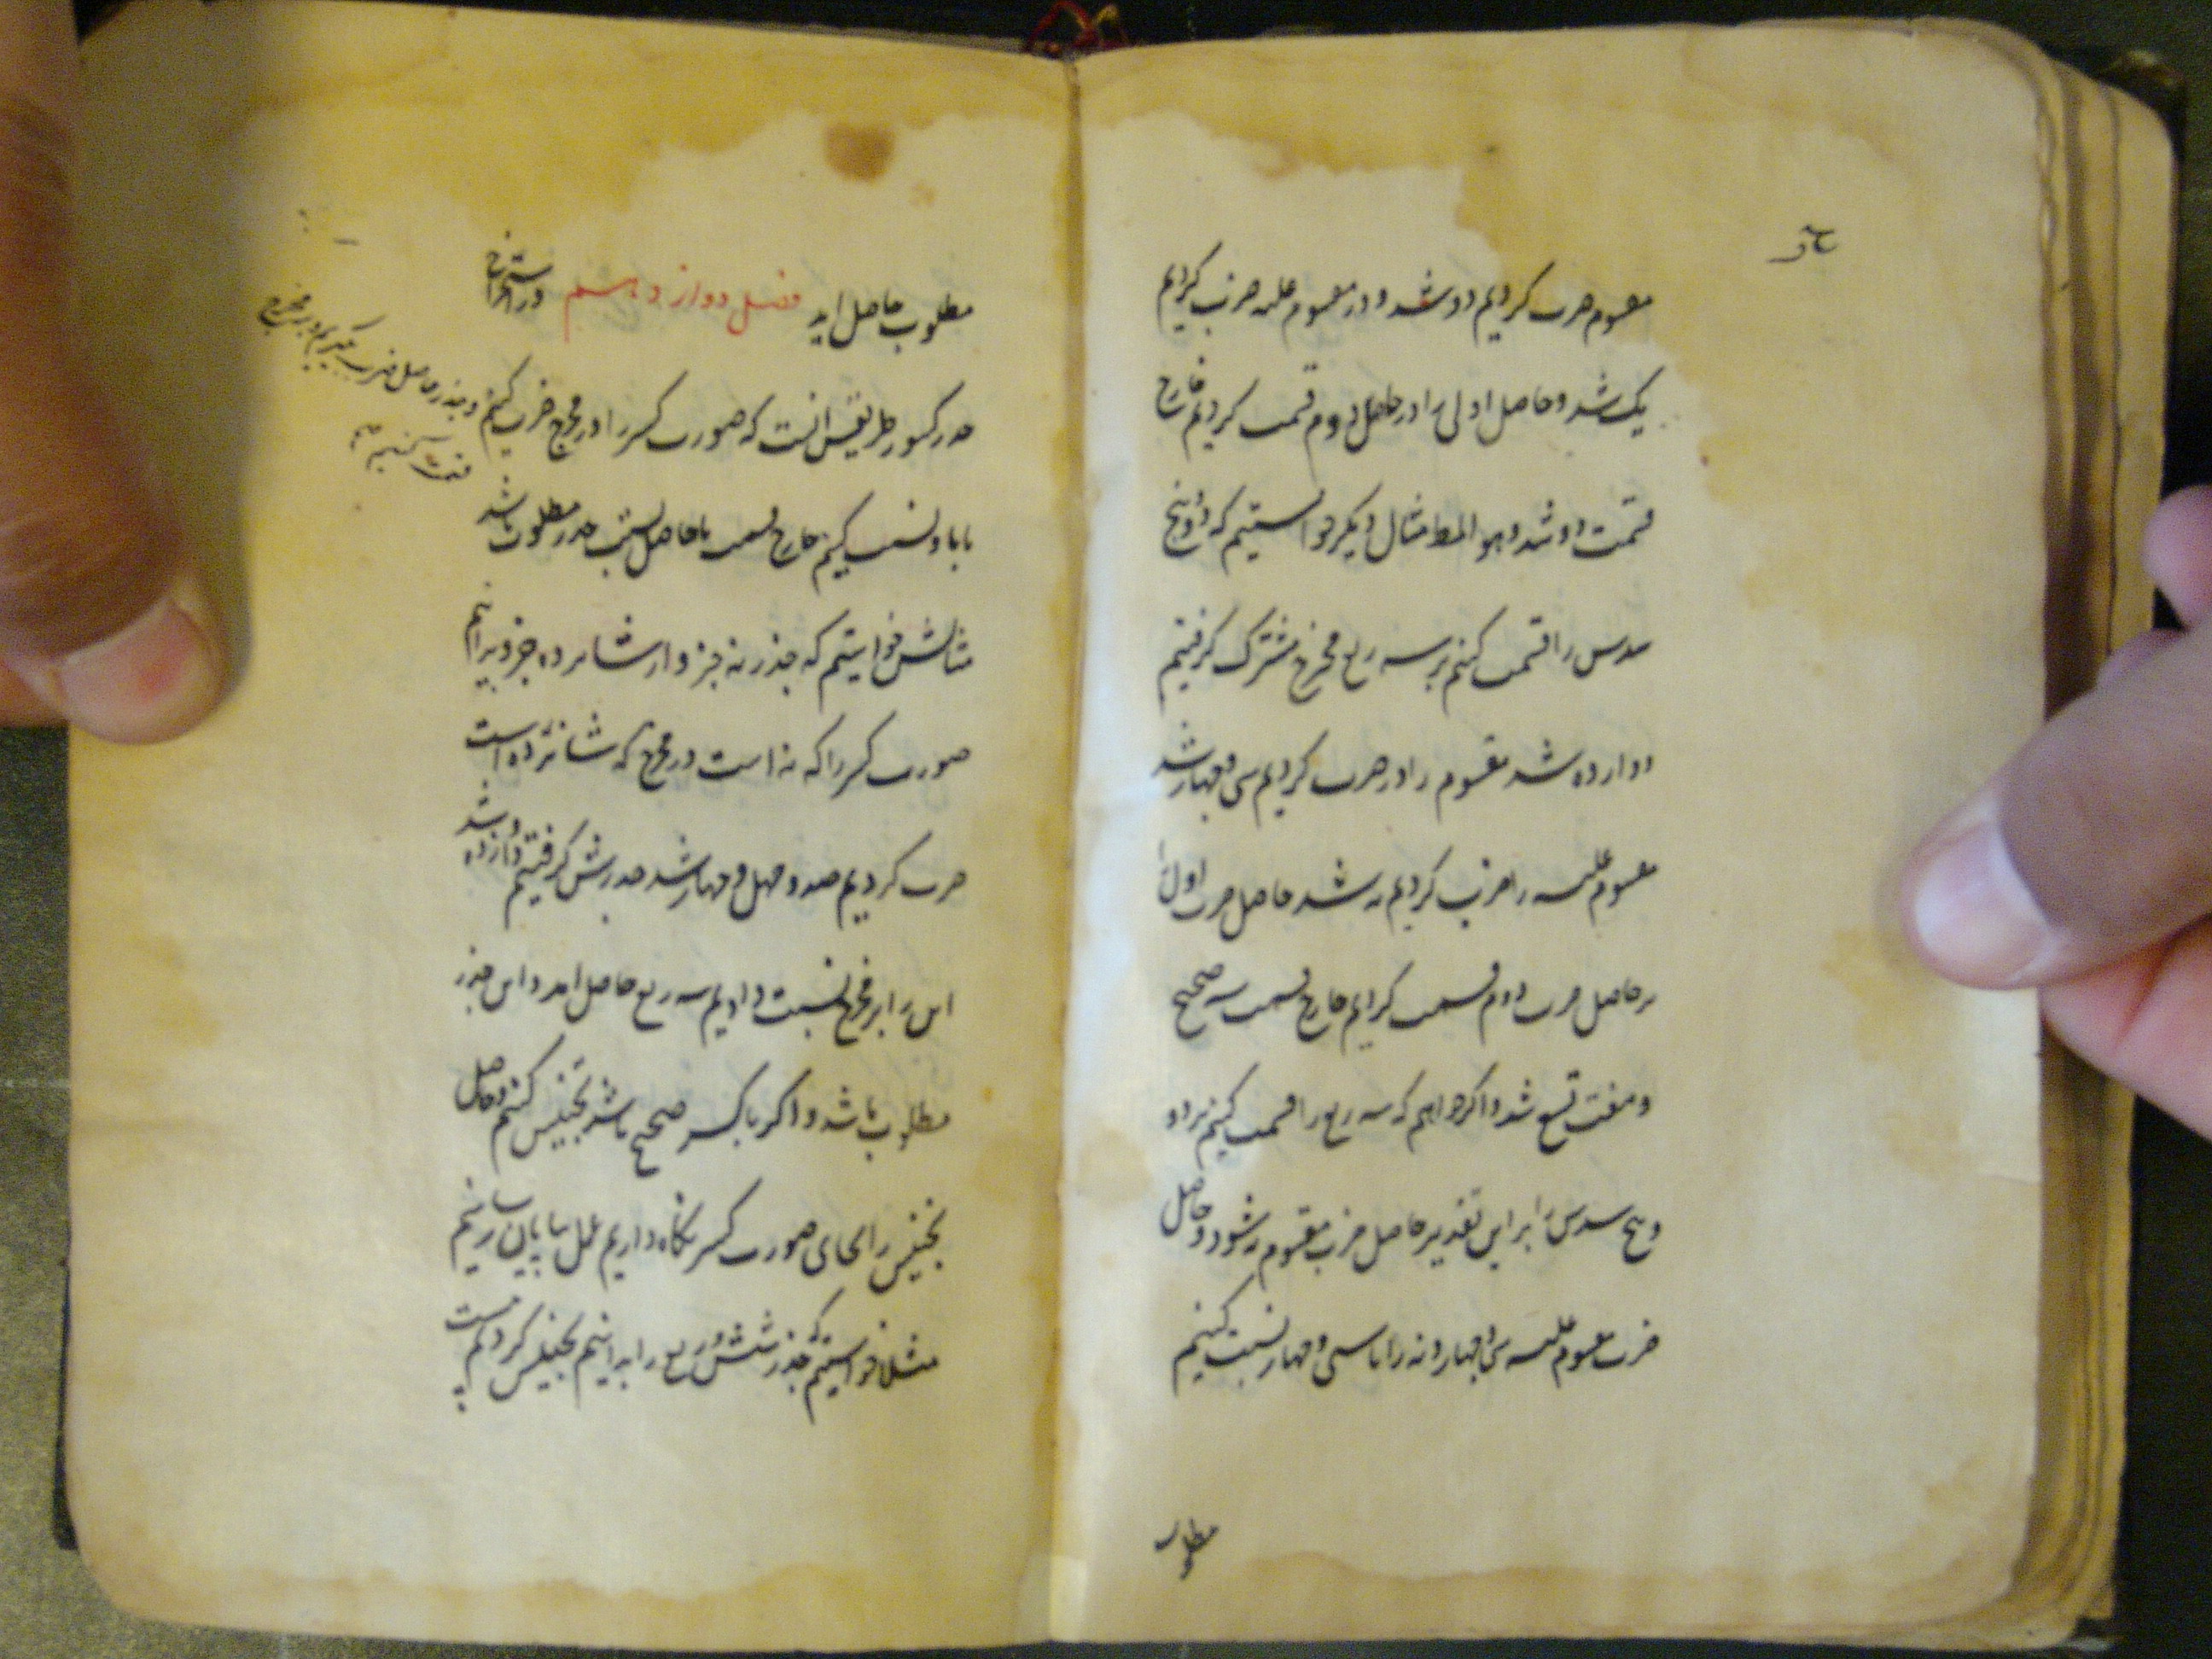 مقسوم ضرب کردیم دو شد و در مقسوم علیه ضرب کردیم
یک شد و حاصل اولی را در حاصل دوم قسمت کردیم خارج
قسمت دو شد و هو المط مثال دیگر خواستیم که دو و پنج
سدس را قسمت کنیم بر سه ربع مخرج مشترک گرفتیم
دوازده شد مقسوم را در ضرب کردیم سی و چهار شد
مقسوم علیه را ضرب کردیم نه شد حاصل ضرب اول
بر حاصل ضرب دوم قسمت کردیم خارج قسمت سه صحیح
و هفت تسع شد و اگر خواهیم که سه ربع را قسمت کنیم بر دو
و پنج سدس بر این تقدیر حاصل ضرب مقسوم نه شود و حاصل
ضرب مقسوم علیه سی و چهار و نه را با سی و چهار نسبت کنیم
مطلوب
مطلوب حاصل اید فصل دوازدهم در استخراج
جذر کسور طریقش انست که صورت کسر را در مخرج ضرب کنیم
و جذر حاصل ضرب بگیریم و بر مخرج
قسمت کنیم
یا با و نسبت کنیم خارج قسمت یا حاصل نسبت جذر مطلوب باشد
مثالش خواستیم که جذر نه جزو از شانزده جزو بدانیم
صورت کسر را که نه است در مخرج که شانزده است
ضرب کردیم صد و چهل و چهار شد جذرش گرفتیم دوازده شد
این را بر مخرج نسبت دادیم سه ربع حاصل امد و این جذر
مطلوب باشد و اگر با کسر صحیح باشد تجنیس کنیم و حاصل
تجنیس را بجای صورت کسر نگاه داریم عمل بپایان رسانیم
مثلا خواستیم که جذر شش و ربع را بدانیم تجنیس کردیم بیست